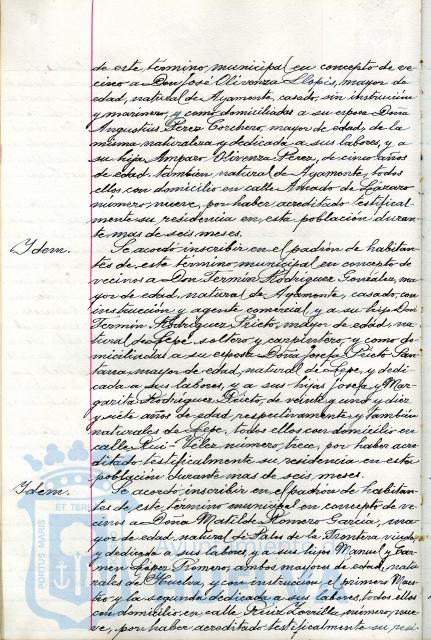 de este término municipal en concepto de ve-
cino a Don José Olivenza Llopis, mayor de
edad, natural de Ayamonte, casado, sin instrucción
y marinero, y como domiciliados a su esposa Doña
Angustias Pérez Corchero, mayor de edad, de la
misma naturaleza y dedicada a sus labores, y a
su hija Amparo Olivenza Pérez, de cinco años
de edad, también natural de Ayamonte, todos
ellos con domicilio en calle Amado de Lázaro
número nueve, por haber acreditado testifical-
mente su residencia en esta población duran-
te mas de seis meses.
Idem. Se acordó inscribir en el padrón de habitan-
tes de este término municipal en concepto de
vecinos a Don Fermín Rodríguez González, ma-
yor de edad, natural de Ayamonte, casado, con
instrucción y agente comercial y a su hijo Don
Fermín Rodríguez Prieto, mayor de edad, na-
tural de Lepe, soltero y carpintero, y como do-
miciliada a su esposa Doña Josefa Prieto San-
tana, mayor de edad, natural de Lepe, y dedi-
cada a sus labores, y a sus hijas Josefa y Mar-
garita Rodríguez Prieto, de veinte y uno y diez
y siete años de edad, respectivamente y también
naturales de Lepe, todos ellos con domicilio en
calle Rui-Vélez número trece, por haber acre-
ditado testificalmente su residencia en esta
población durante mas de seis meses.
Idem. Se acordó inscribir en el padrón de habitan-
tes de este término municipal en concepto de
vecinos a Doña Matilde Romero García, ma-
yor de edad, natural de Palos de la Frontera, viuda
y dedicada a sus labores y a sus hijos Manuel y Car-
men López Romero, ambos mayores de edad, natu-
rales de Huelva, y con instrucción el primero Maes-
tro y la segunda dedicada a sus labores, todos ellos
con domicilio en calle Ruiz Zorrilla, número, nue-
ve, por haber acreditado testificalmente su resi-
PORTUS MARIS ET TERRE